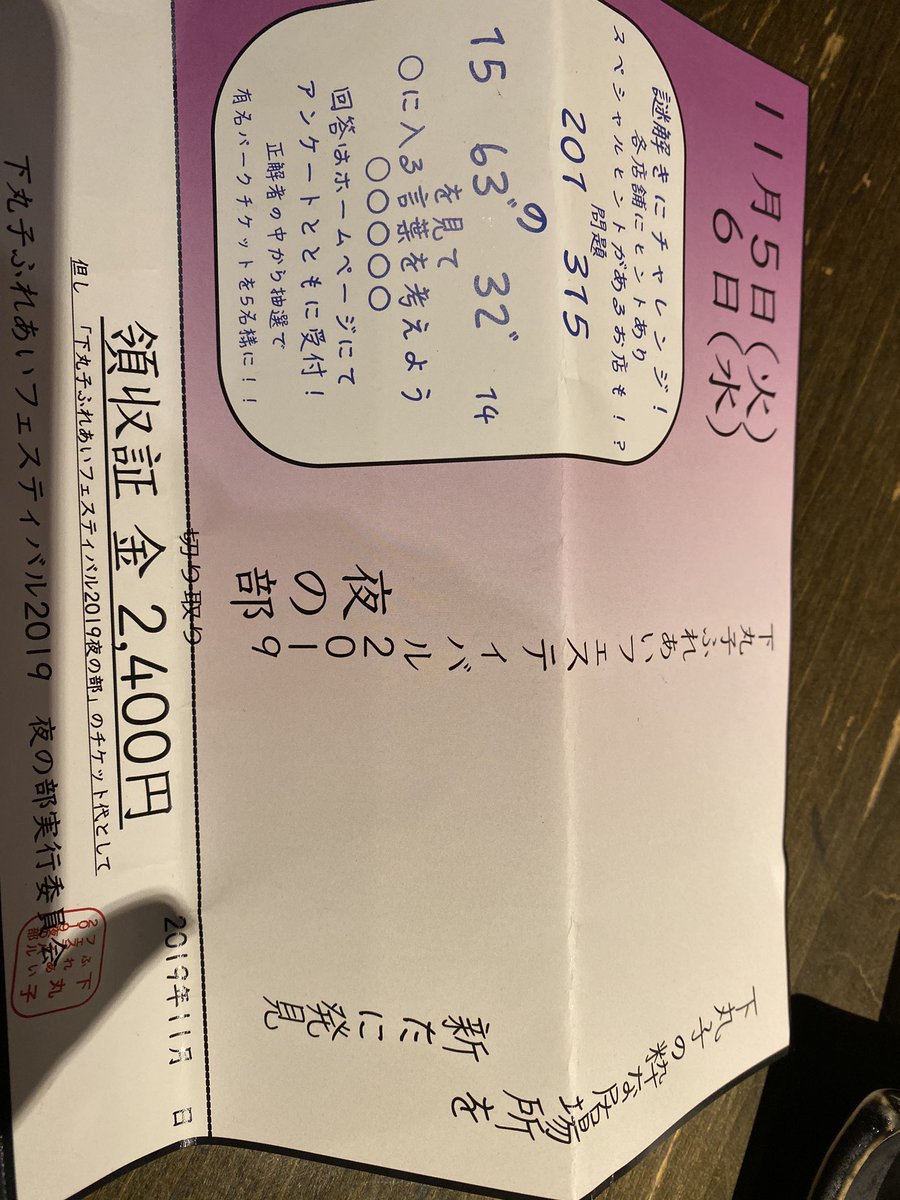 11月5日(火)
6日(水)
謎解きにチャレンジ!
各店舗にヒントあり
スペシャルヒントがあるお店も!?
問題
207 315
15 63〃の 32〃 14
を見て
〇に入る言葉を考えよう
〇〇〇〇〇
回答はホームページにて
アンケートとともに受付!
正解者の中から抽選で
有名パークチケットを5名様に!!
下丸子ふれあいフェスティバル2019
夜の部
下丸子の粋な居場所を
新たに発見
切り取り
2019年11月 日
領収証 金 2,400円
但し 「下丸子ふれあいフェスティバル2019夜の部」のチケット代として
下丸子ふれあいフェスティバル2019 夜の部実行委員会